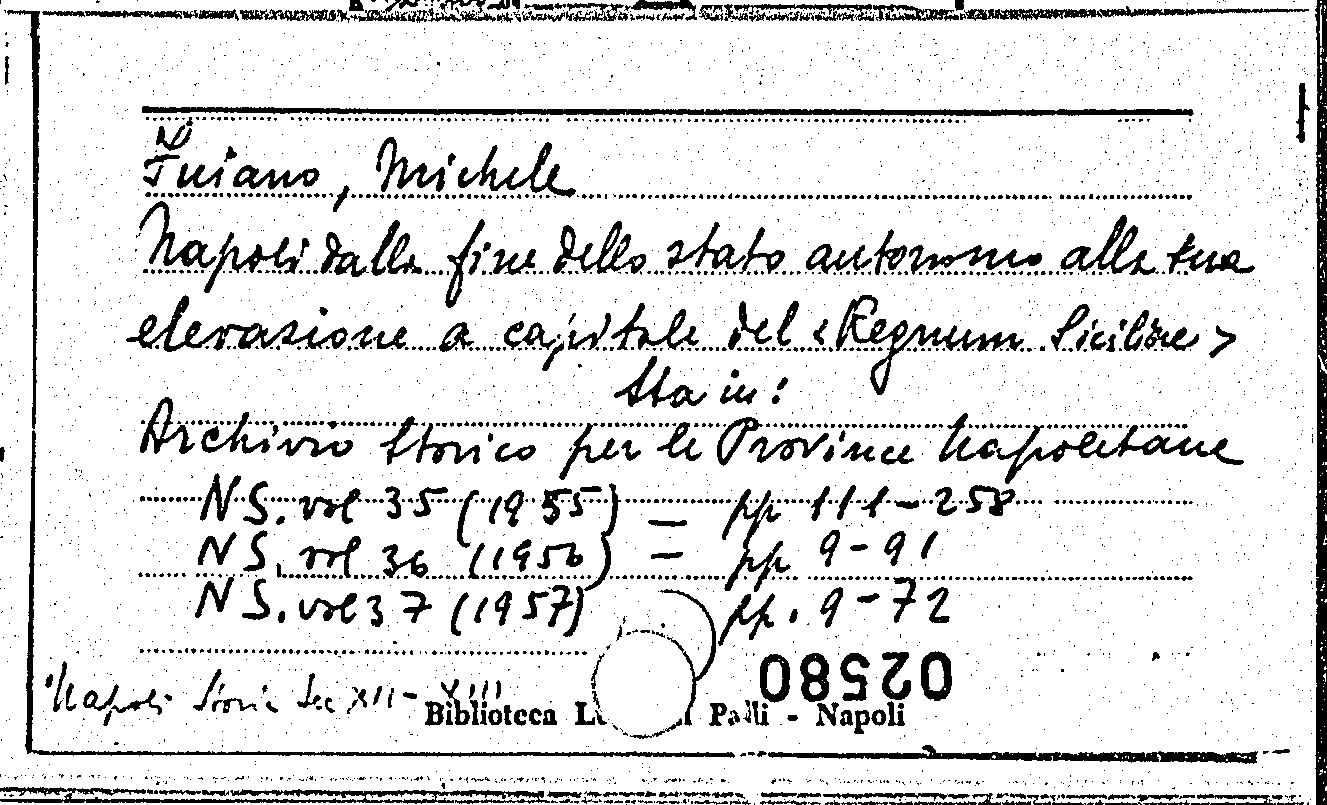 Fuiano, Michele
Napoli dalla fine dello stato autonomo alla sua
elevazione a capitale del «Regnum Siciliae»
Sta in:
Archivio Storico per le Province Napoletane
NS. vol 35 (1955) — pp 111-258
NS. vol 36 (1956) — pp 9-91
NS. vol 37 (1957) pp. 9-72
02580
Napoli Storia Sec XII-XIII
Biblioteca - Napoli